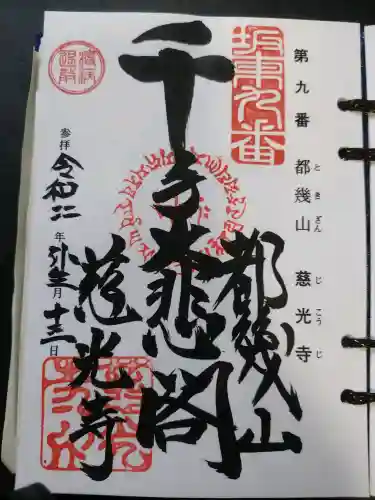 第九番 都幾山 慈光寺
ときざん じこうじ
坂東九番
都幾山
千手大悲閣
慈光寺
参拝 令和二年 月十三日